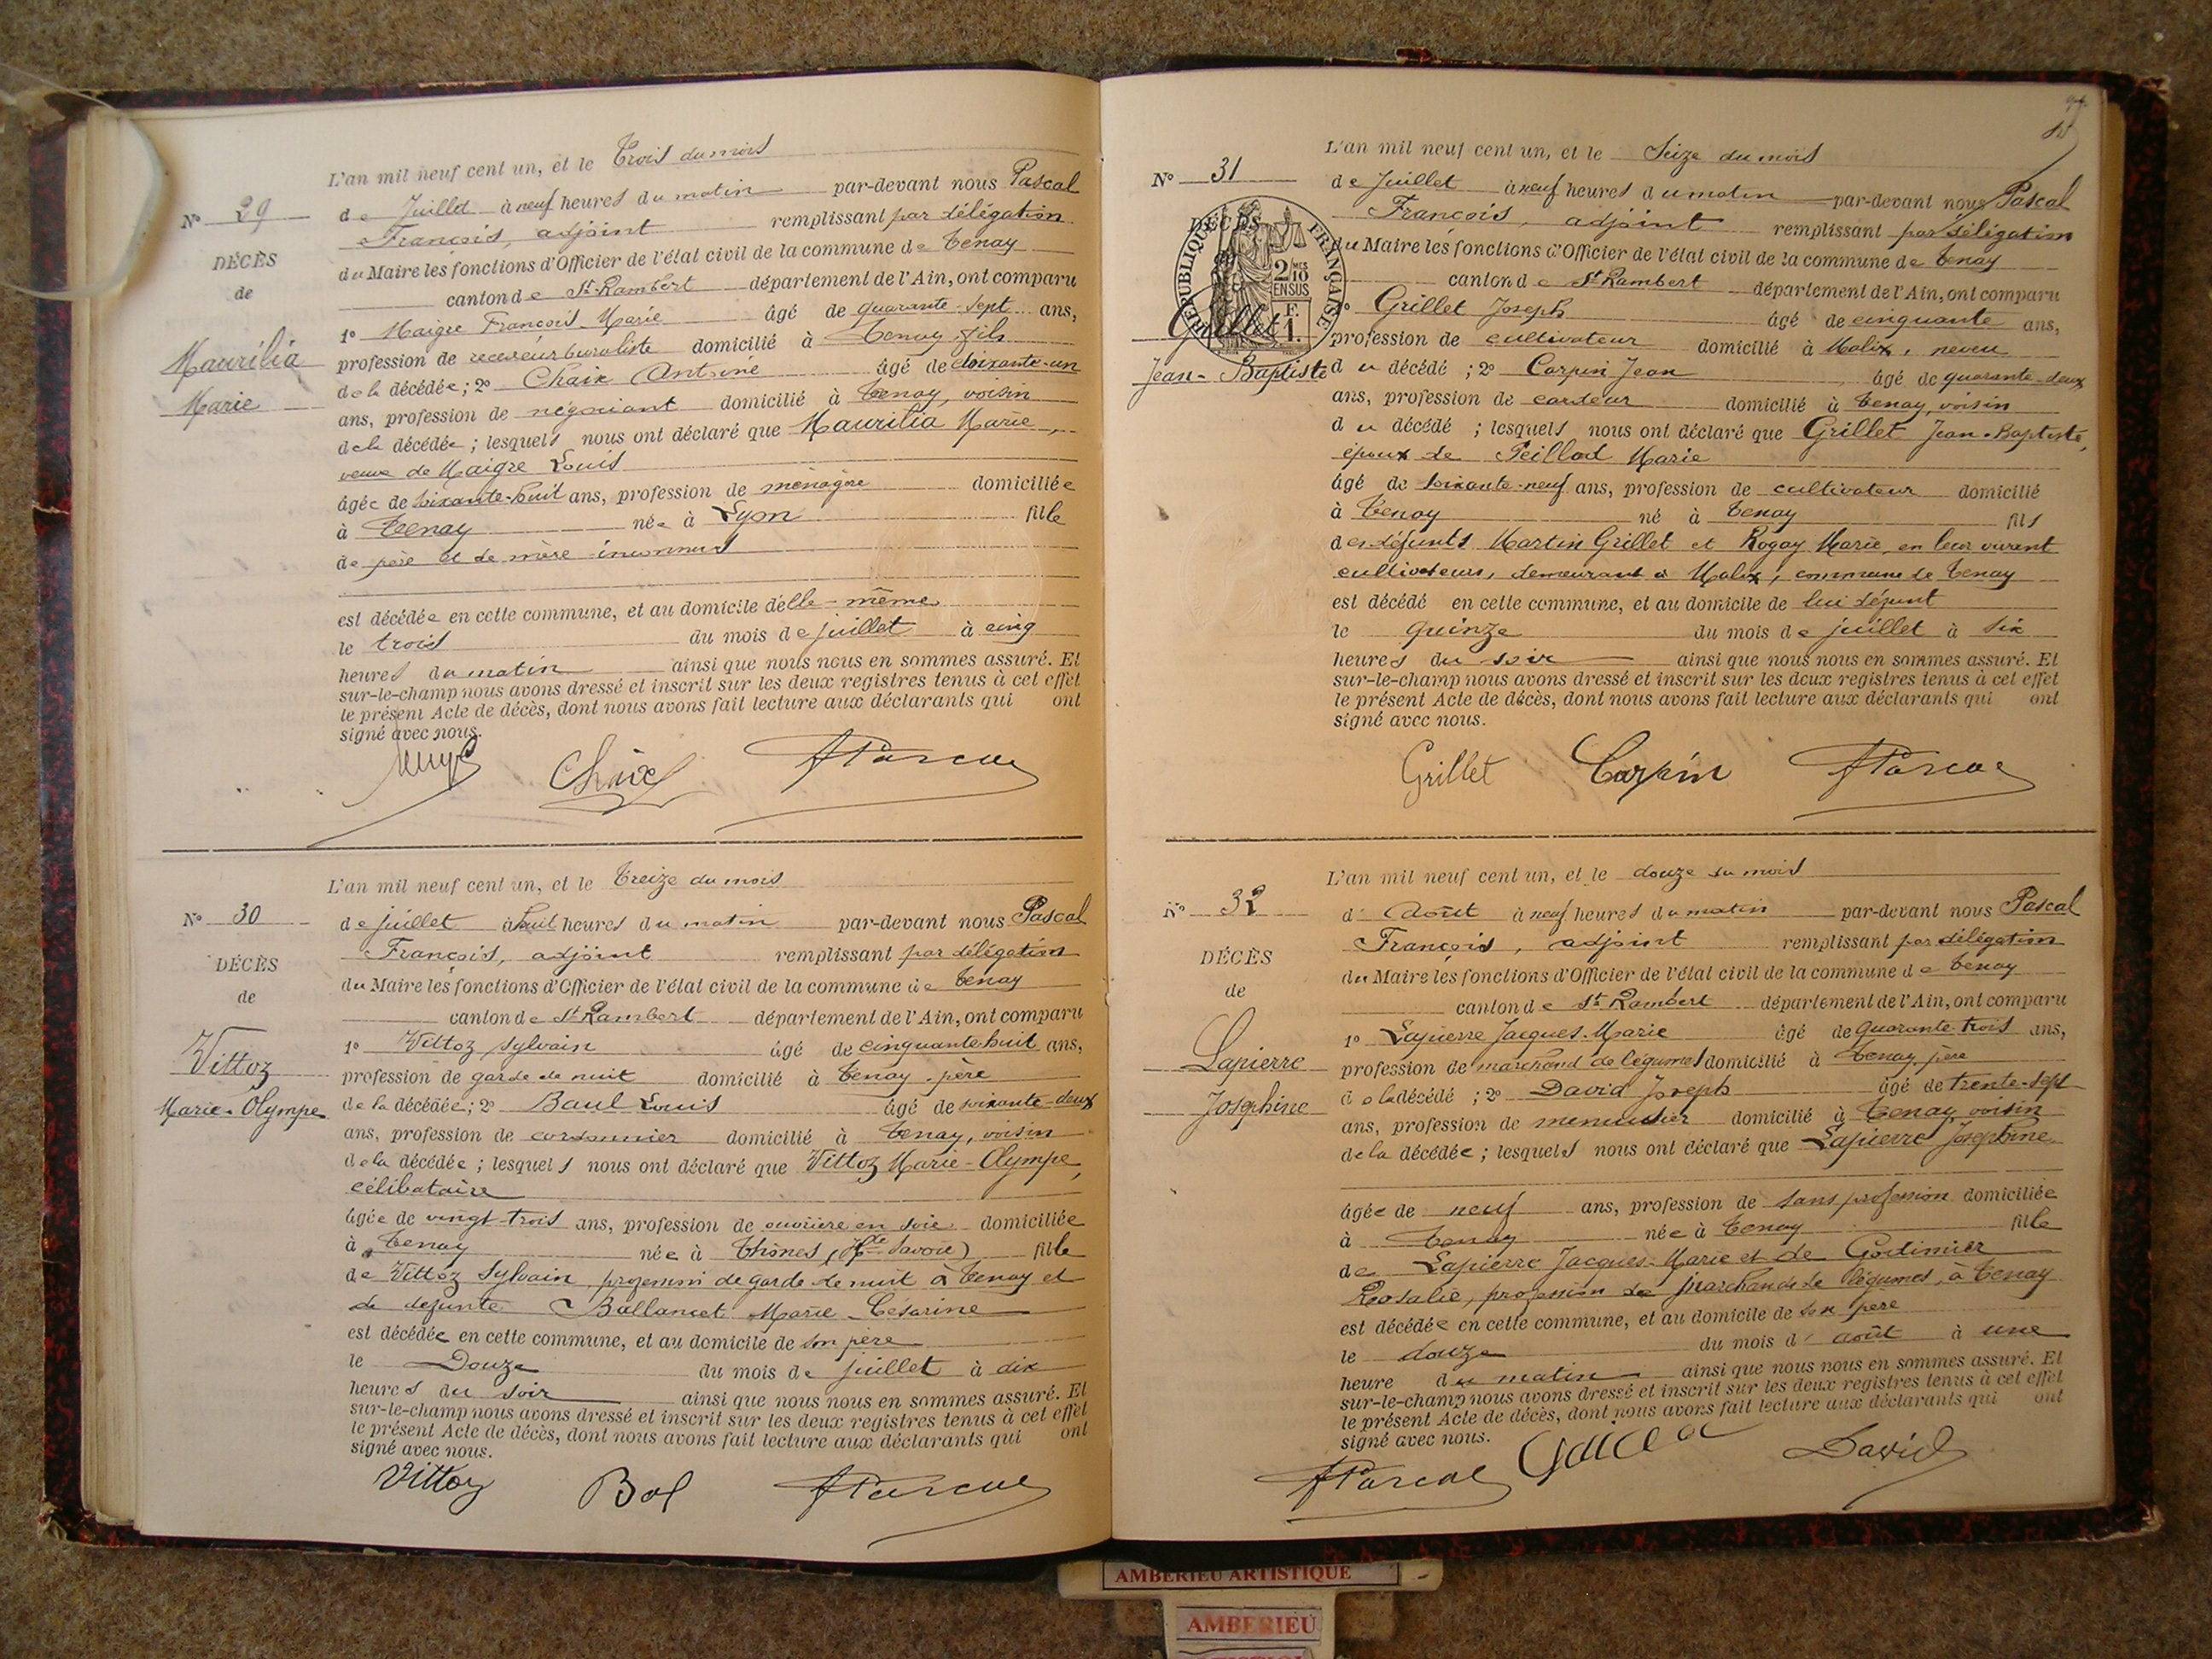 L'an mil neuf cent un, et le Trois du mois
N° 29
de Juillet à neuf heures du matin par-devant nous Pascal
François, adjoint remplissant par délégation
DÉCÈS
de
Maurilia
Marie
du Maire les fonctions d'Officier de l'état civil de la commune de Tenay
canton de St-Rambert département de l'Ain, ont comparu
1° Maigre François-Marie âgé de quarante-sept ans,
profession de receveur buraliste domicilié à Tenay, fils
de la décédée; 2° Chaix Antoine âgé de soixante-un
ans, profession de négociant domicilié à Tenay, voisin
de la décédée; lesquels nous ont déclaré que Maurilia Marie,
veuve de Maigre Louis
âgée de soixante-huit ans, profession de ménagère domiciliée
à Tenay née à Lyon fille
de père et de mère inconnus
est décédée en cette commune, et au domicile d'elle-même
le trois du mois de juillet à cinq
heures du matin ainsi que nous nous en sommes assuré. Et
sur-le-champ nous avons dressé et inscrit sur les deux registres tenus à cet effet
le présent Acte de décès, dont nous avons fait lecture aux déclarants qui ont
signé avec nous.
Chaix Pascal
L'an mil neuf cent un, et le Treize du mois
N° 30
de juillet à huit heures du matin par-devant nous Pascal
François, adjoint remplissant par délégation
DÉCÈS
de
Vittoz
Marie-Olympe
du Maire les fonctions d'Officier de l'état civil de la commune de Tenay
canton de St Rambert département de l'Ain, ont comparu
1° Vittoz Sylvain âgé de cinquante huit ans,
profession de garde de nuit domicilié à Tenay, père
de la décédée; 2° Baul Louis âgé de soixante-deux
ans, profession de cordonnier domicilié à Tenay, voisin
de la décédée; lesquels nous ont déclaré que Vittoz Marie-Olympe,
célibataire
âgée de vingt-trois ans, profession de ouvrière en soie domiciliée
à Tenay née à Thônes (Hte Savoie) fille
de Vittoz Sylvain, profession de garde de nuit à Tenay et
de défunte Ballancet Marie-Césarine
est décédée en cette commune, et au domicile de son père
le Douze du mois de juillet à dix
heures du soir ainsi que nous nous en sommes assuré. Et
sur-le-champ nous avons dressé et inscrit sur les deux registres tenus à cet effet
le présent Acte de décès, dont nous avons fait lecture aux déclarants qui ont
signé avec nous.
Vittoz Bol Pascal
L'an mil neuf cent un, et le Seize du mois
N° 31
de Juillet à neuf heures du matin par-devant nous Pascal
François, adjoint remplissant par délégation
DÉCÈS
RÉPUBLIQUE FRANÇAISE
2 MES 10
EN SUS
F.
1.
Grillet
Jean-Baptiste
du Maire les fonctions d'Officier de l'état civil de la commune de Tenay
canton de St Rambert département de l'Ain, ont comparu
1° Grillet Joseph âgé de cinquante ans,
profession de cultivateur domicilié à Malix, neveu
du décédé; 2° Carpin Jean âgé de quarante-deux
ans, profession de cardeur domicilié à Tenay, voisin
du décédé; lesquels nous ont déclaré que Grillet Jean-Baptiste,
époux de Peillod Marie
âgé de soixante-neuf ans, profession de cultivateur domicilié
à Tenay né à Tenay fils
des défunts Martin Grillet et Rogay Marie, en leur vivant
cultivateurs, demeurant à Malix, commune de Tenay
est décédé en cette commune, et au domicile de lui défunt
le quinze du mois de juillet à six
heures du soir ainsi que nous nous en sommes assuré. Et
sur-le-champ nous avons dressé et inscrit sur les deux registres tenus à cet effet
le présent Acte de décès, dont nous avons fait lecture aux déclarants qui ont
signé avec nous.
Grillet Carpin Pascal
L'an mil neuf cent un, et le douze du mois
N° 32
d'Août à neuf heures du matin par-devant nous Pascal
François, adjoint remplissant par délégation
DÉCÈS
de
Lapierre
Josephine
du Maire les fonctions d'Officier de l'état civil de la commune de Tenay
canton de St Rambert département de l'Ain, ont comparu
1° Lapierre Jacques-Marie âgé de quarante-trois ans,
profession de marchand de légumes domicilié à Tenay, père
de la décédé; 2° David Joseph âgé de trente-sept
ans, profession de menuisier domicilié à Tenay, voisin
de la décédée; lesquels nous ont déclaré que Lapierre Josephine
âgée de neuf ans, profession de sans profession domiciliée
à Tenay née à Tenay fille
de Lapierre Jacques-Marie et de Godimier
Rosalie, profession de marchands de légumes, à Tenay
est décédée en cette commune, et au domicile de son père
le douze du mois d'août à une
heure du matin ainsi que nous nous en sommes assuré. Et
sur-le-champ nous avons dressé et inscrit sur les deux registres tenus à cet effet
le présent Acte de décès, dont nous avons fait lecture aux déclarants qui ont
signé avec nous.
Pascal David
AMBERIEU ARTISTIQUE
AMBERIEU